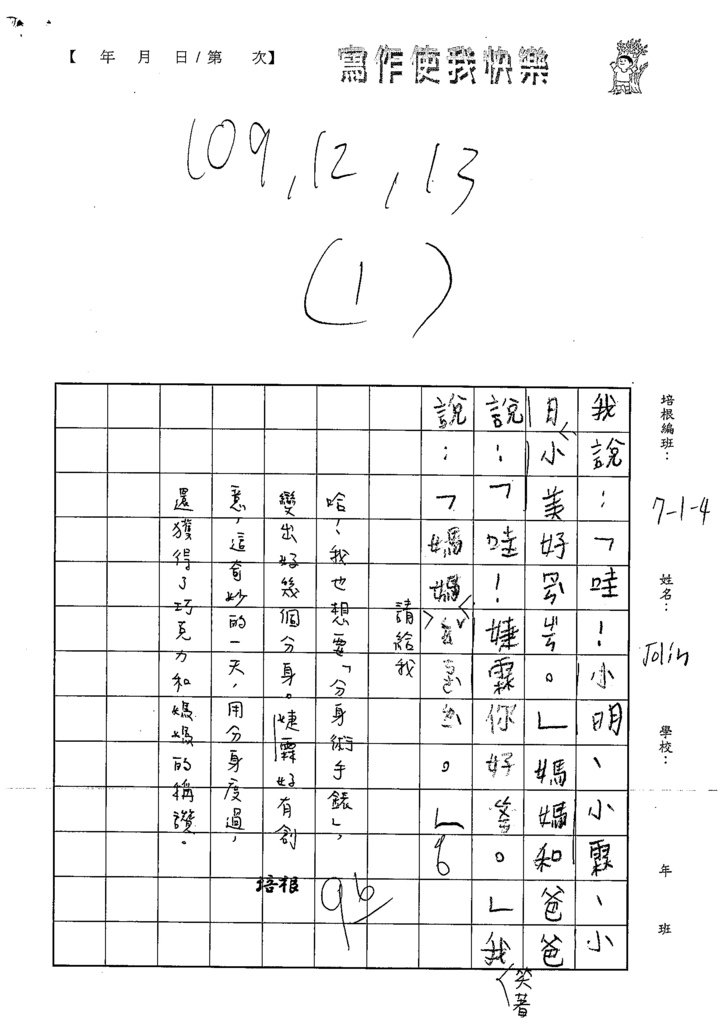 【 年 月 日/第 次】
寫作使我快樂
109,12,13
(1)
培根編班：
7-1-4
姓名：
Jolin
學校：
年
班
我說：「哇！小明、小霖、小
月、小美好ㄌㄧˋ
。」媽媽和爸爸
說：「哇！婕霖你好
。」我
笑著
說：「媽媽
。」
請給我
哈！我也想要「分身術手錶」，
變出好幾個分身。婕霖好有創
意，這奇妙的一天，用分身度過，
還獲得了巧克力和媽媽的稱讚。
培根
96